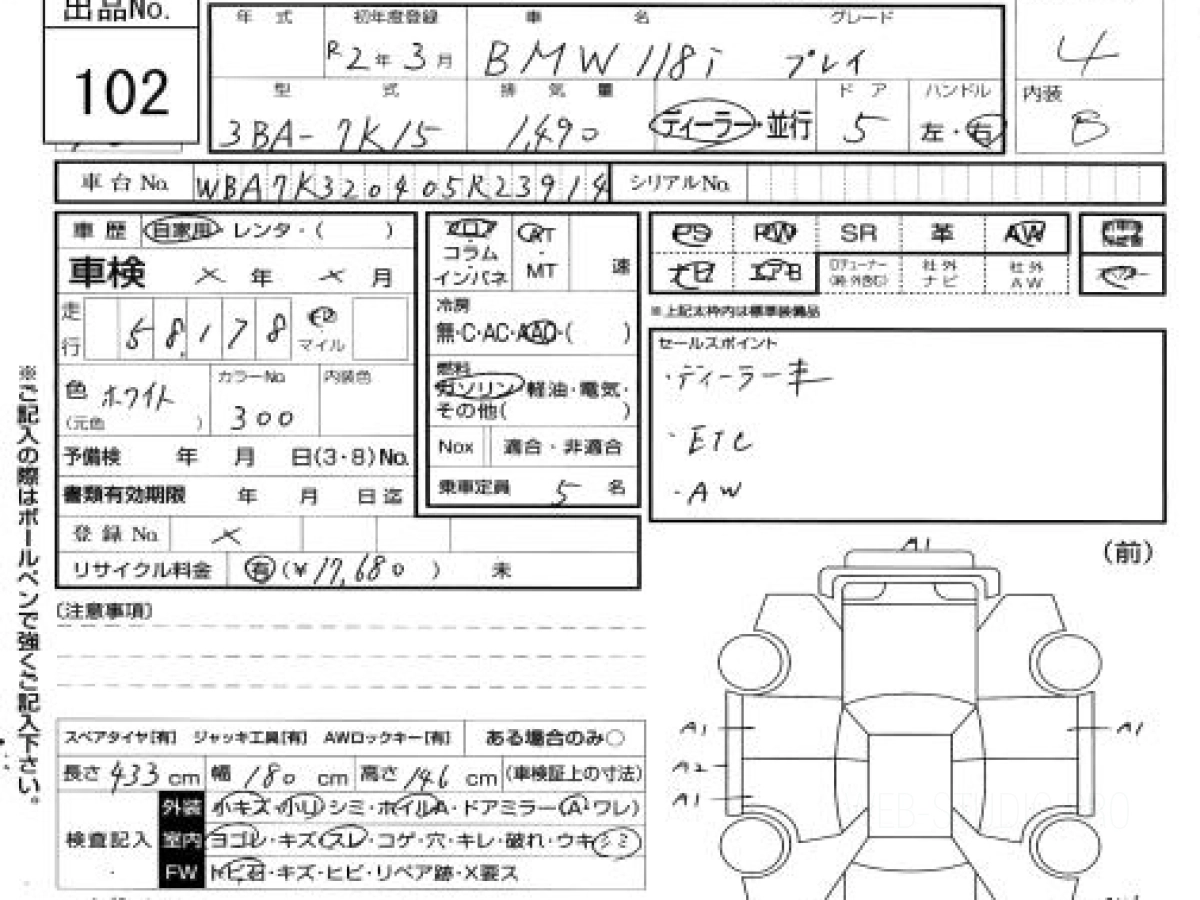 出品No.
102
年式 初年度登録 車名 グレード
R2年3月 BMW 118i プレイ
4
型式 排気量 ディーラー・並行 ドア ハンドル 内装
3BA-7K15 1,490 5 左・右 B
車台No. WBA7K320405R23914 シリアルNo.
車歴 自家用・レンタ・( )
車検 × 年 × 月
走行 58,178 マイル
色 ホワイト (元色 ) カラーNo. 300 内装色
予備検 年 月 日(3・8)No.
書類有効期限 年 月 日迄
登録No. ×
リサイクル料金 有(¥17,680 ) 未
フロア コラム インパネ AT・MT 速
冷房
無・C・AC・AAC・( )
燃料
ガソリン・軽油・電気・
その他( )
Nox 適合・非適合
乗車定員 5 名
PS PW SR 革 AW
エアB 社外ナビ 社外AW
※上記太枠内は標準装備品
セールスポイント
・ディーラー車
・ETC
・AW
※ご記入の際はボールペンで強くご記入下さい。
(注意事項)
(前)
A1
A1 A1
A2
A1
スペアタイヤ[有] ジャッキ工具[有] AWロックキー[有] ある場合のみ○
長さ 433 cm 幅 180 cm 高さ 146 cm (車検証上の寸法)
検査記入
外装 小キズ・小リ・シミ・ホイルA・ドアミラー(A・ワレ)
室内 ヨゴレ・キズ・スレ・コゲ・穴・キレ・破れ・ウキ・シミ
FW トビ石・キズ・ヒビ・リペア跡・X要ス